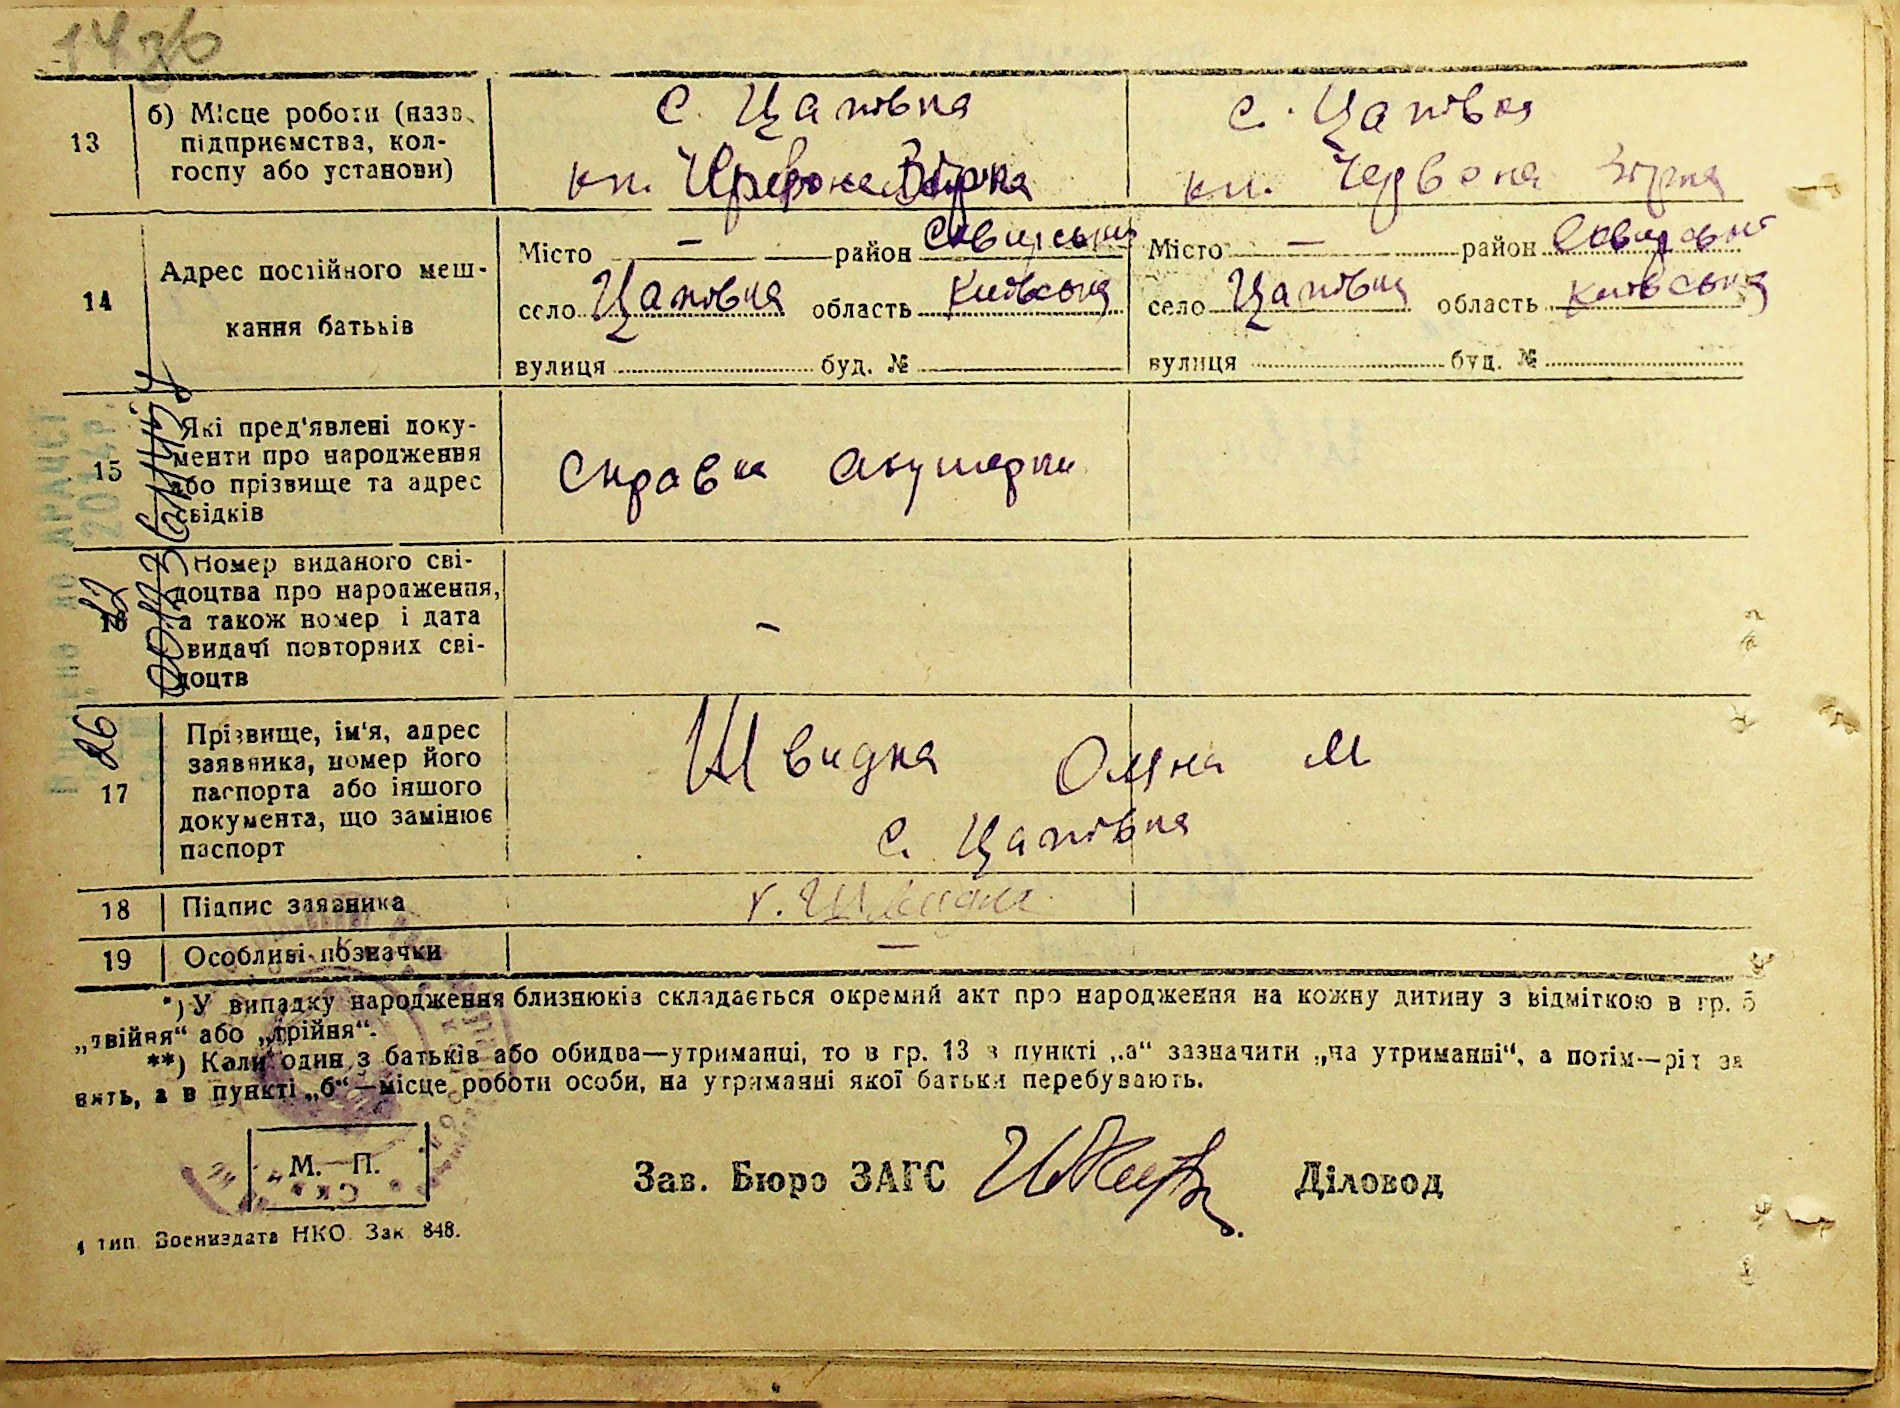 14зб
13
б) Місце роботи (назв.
підприємства, кол-
госпу або установи)
с. Цапівка
кп. Червона Зірка
с. Цапівка
кп. Червона Зірка
14
Адрес постійного меш-
кання батьків
Місто — район Сквирський
село Цапівка область Київська
вулиця буд. №
Місто — район Сквирський
село Цапівка область Київська
вулиця буд. №
15
Які пред'явлені доку-
менти про народження
або прізвище та адрес
свідків
Справка акушерки
16
Номер виданого сві-
доцтва про народження,
а також номер і дата
видачі повторних сві-
доцтв
–
17
Прізвище, ім'я, адрес
заявника, номер його
паспорта або іншого
документа, що замінює
паспорт
Швидка Оляна М
с. Цапівка
18
Підпис заявника
19
Особливі позначки
—
*) У випадку народження близнюків складається окремий акт про народження на кожну дитину з відміткою в гр. 5
„двійня“ або „трійня“.
**) Коли один з батьків або обидва—утриманці, то в гр. 13 в пункті „а“ зазначити „на утриманні“, а потім—рід за
нять, а в пункті „б“—місце роботи особи, на утриманні якої батьки перебувають.
М. П.
Зав. Бюро ЗАГС
Діловод
1 тип. Воениздата НКО. Зак. 848.